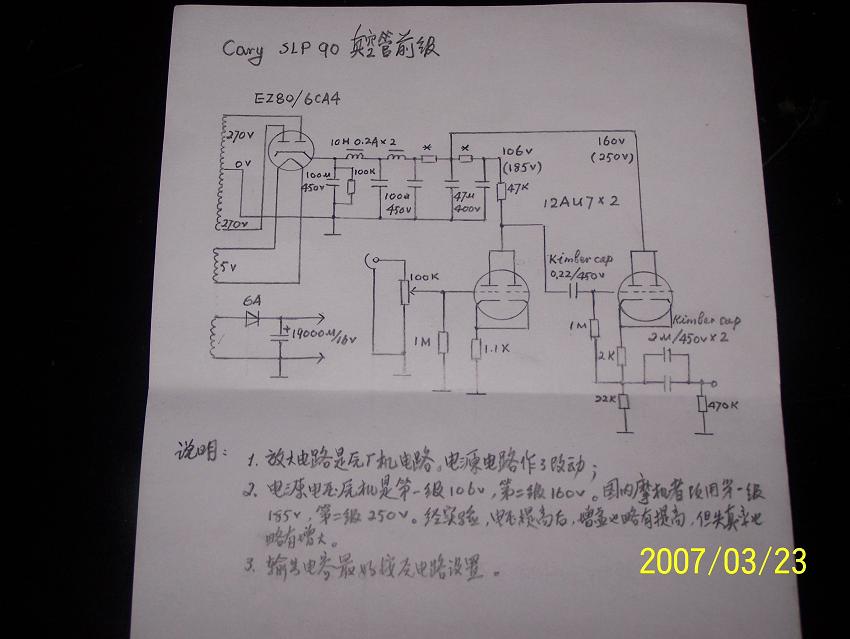 Cary SLP 90 真空管前级
EZ80/6CA4
270V
0V
270V
5V
10H 0.2A×2
100μ
450V
100K
100μ
450V
*
*
47μ
400V
106V
(185V)
47K
160V
(250V)
12AU7×2
100K
1M
1.1K
Kimber cap
0.22/450V
1M
2K
22K
Kimber cap
2μ/450V×2
470K
6A
+
19000μ/16V
说明:
1. 放大电路是原厂机电路。电源电路作了改动;
2. 电源电压原机是第一级106V,第二级160V。国内摩机者改用第一级
185V,第二级250V。经实验,电压提高后,增益也略有提高,但失真率也
略有增大。
3. 输出电容最好按原电路设置。
2007/03/23